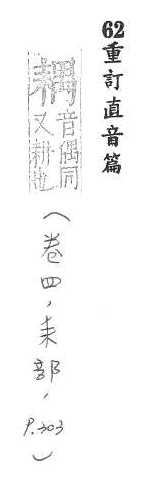 62重訂直音篇
耦 音偶同
又耕也
(卷四,耒部,P.303)